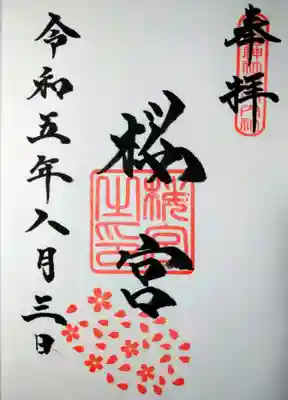 奉拝
桜宮
令和五年八月三日